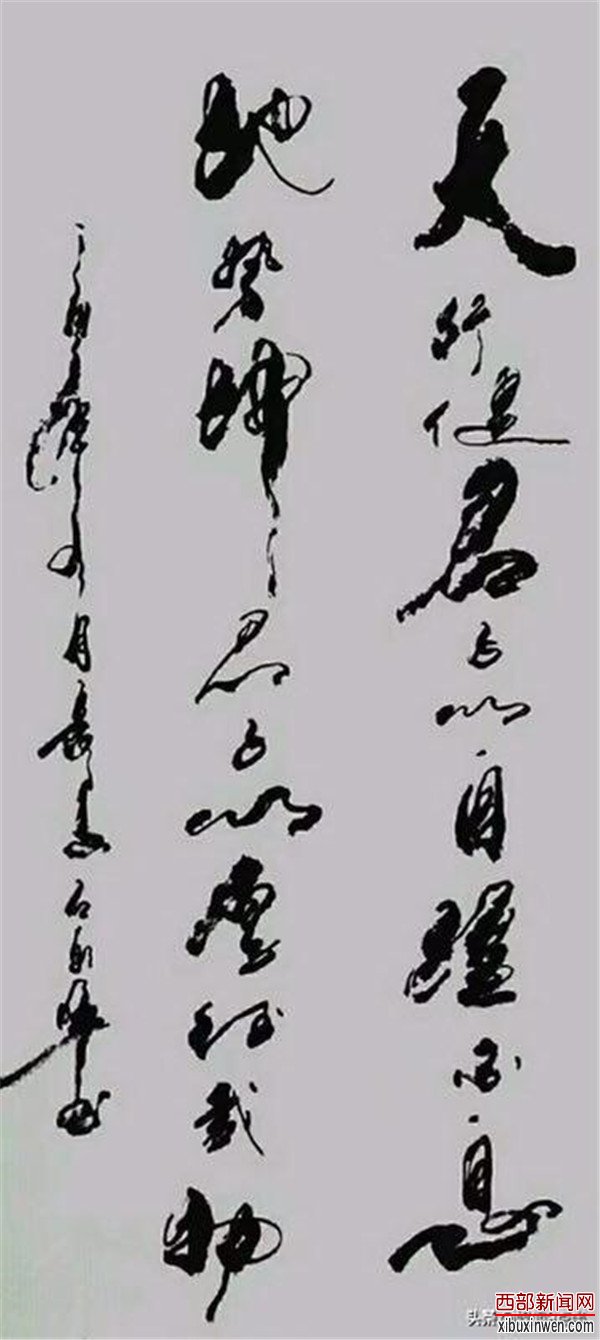 天行健君子以自彊不息
地势坤君子以厚德载物
月長春石
头条
西部新闻网
xibuxinwen.com